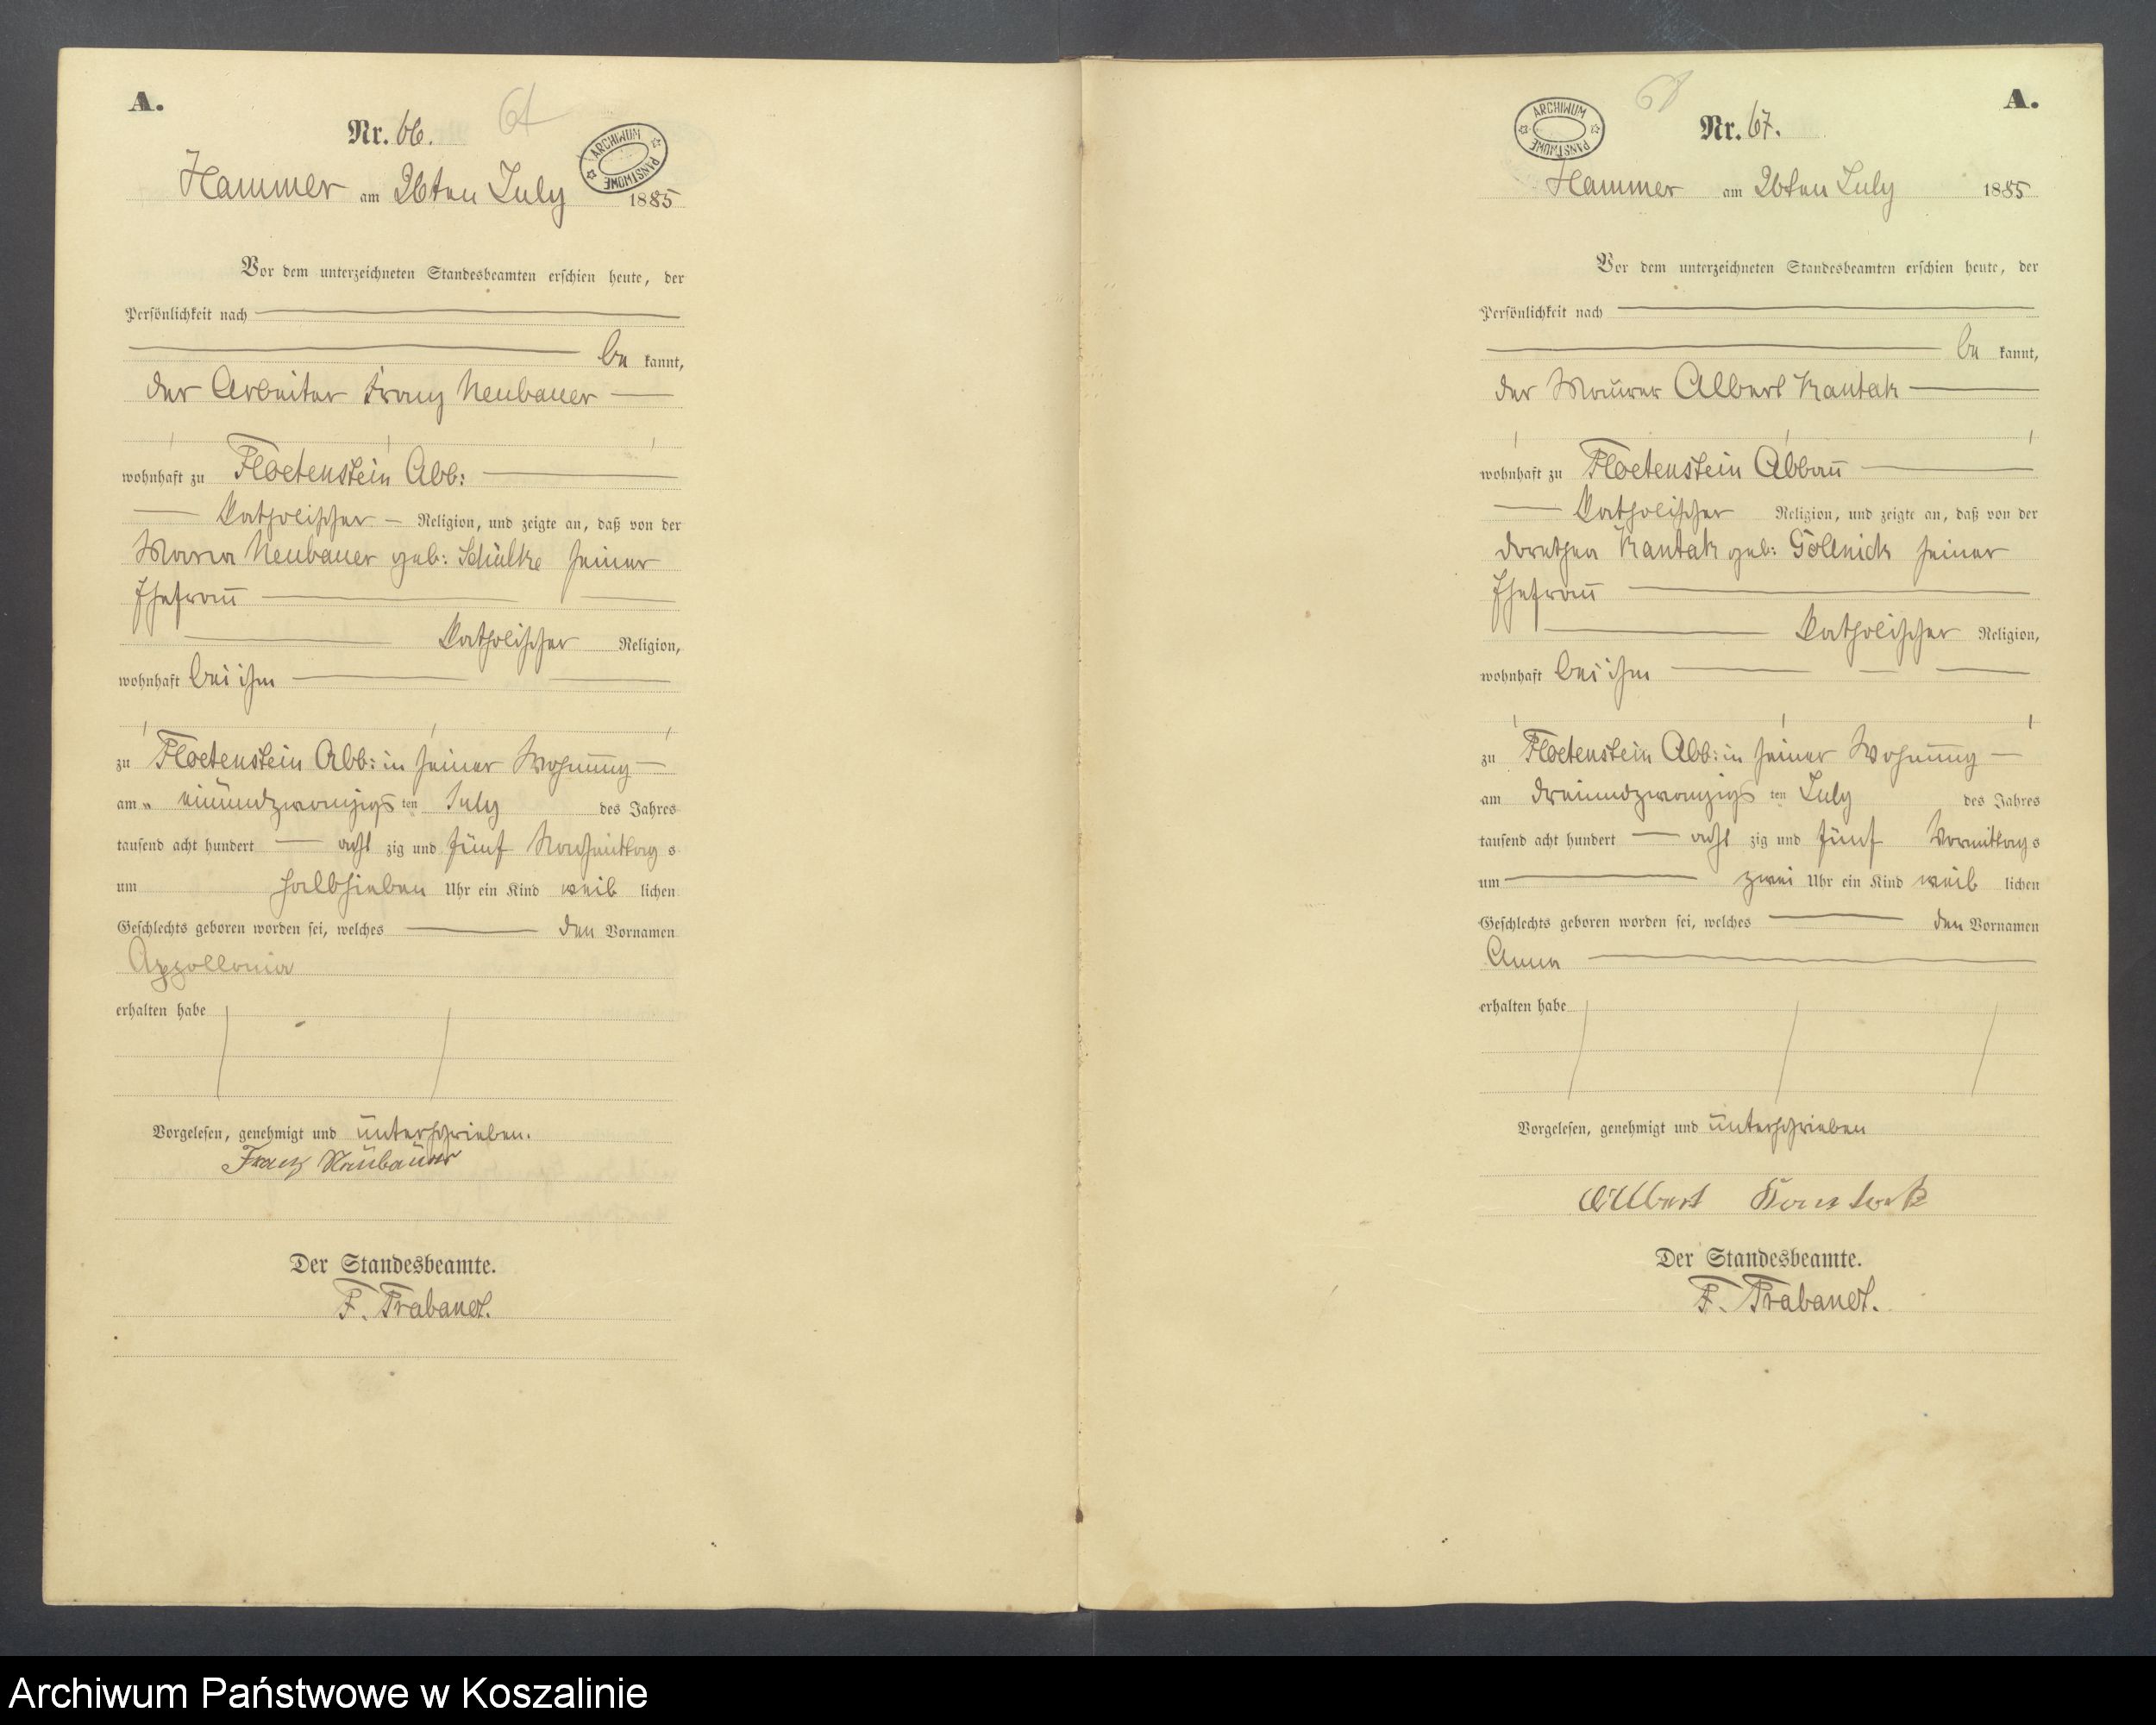 A.
Nr. 66.
ARCHIWUM PAŃSTWOWE
Hammer am 26ten July 1885
Vor dem unterzeichneten Standesbeamten erschien heute, der
Persönlichkeit nach
be kannt,
der Arbeiter Franz Neubauer
wohnhaft zu Floetenstein Abb:
katholischer Religion, und zeigte an, daß von der
Maria Neubauer geb: Schülke seiner
Ehefrau
katholischer Religion,
wohnhaft bei ihm
zu Floetenstein Abb: in seiner Wohnung
am einundzwanzigs ten July des Jahres
tausend acht hundert acht zig und fünf Nachmittag s
um halbsieben Uhr ein Kind weib lichen
Geschlechts geboren worden sei, welches den Vornamen
Appollonia
erhalten habe
Vorgelesen, genehmigt und unterschrieben.
Franz Neubauer
Der Standesbeamte.
F. Trabandt.
A.
ARCHIWUM PAŃSTWOWE
Nr. 67.
Hammer am 26ten July 1885
Vor dem unterzeichneten Standesbeamten erschien heute, der
Persönlichkeit nach
be kannt,
der Maurer Albert Kantak
wohnhaft zu Floetenstein Abbau
katholischer Religion, und zeigte an, daß von der
Dorothea Kantak geb: Göllnick seiner
Ehefrau
katholischer Religion,
wohnhaft bei ihm
zu Floetenstein Abb: in seiner Wohnung
am dreiundzwanzigs ten July des Jahres
tausend acht hundert acht zig und fünf Vormittag s
um zwei Uhr ein Kind weib lichen
Geschlechts geboren worden sei, welches den Vornamen
Anna
erhalten habe
Vorgelesen, genehmigt und unterschrieben
Albert Kantak
Der Standesbeamte.
F. Trabandt.
Archiwum Państwowe w Koszalinie